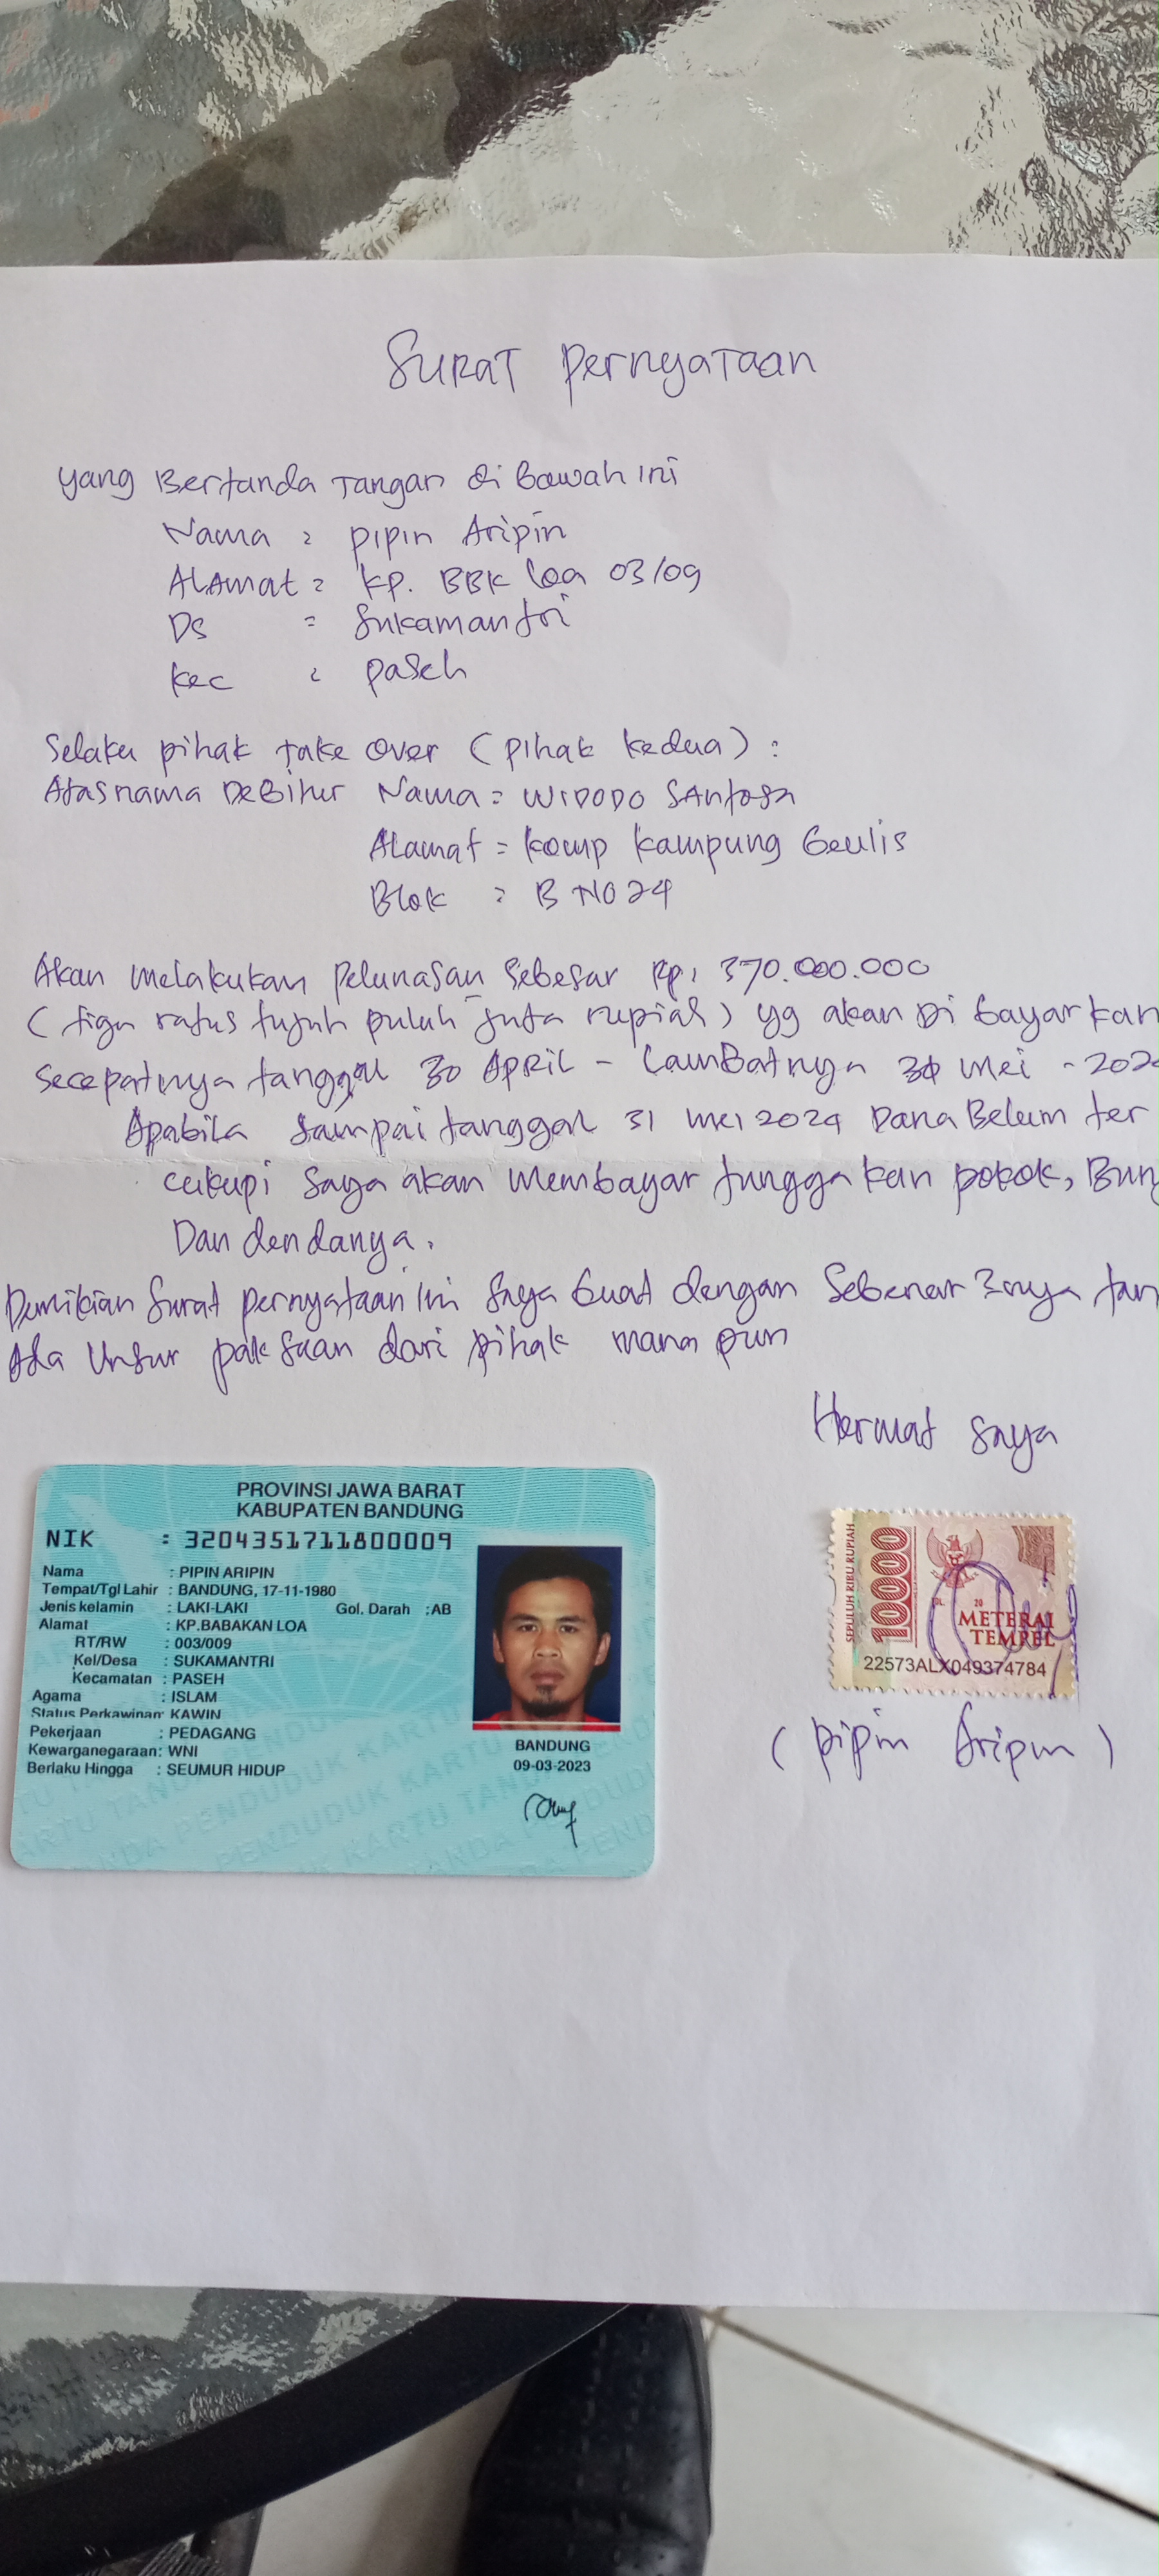 Surat Pernyataan
yang Bertanda Tangan di Bawah ini
Nama : Pipin Aripin
ALAmat : kp. BBK Loa 03/09
DS : Sukamantri
Kec : paseh
Selaku pihak take over (pihak kedua) :
Atas nama Debitur Nama : WIDODO SAntosa
Alamat = komp kampung Geulis
Blok : B NO 24
Akan melakukan pelunasan sebesar Rp. 370.000.000
(tiga ratus tujuh puluh juta rupiah) yg akan Di bayarkan
secepatnya tanggal 30 April - LamBatnya 30 mei - 202
Apabila sampai tanggal 31 mei 2024 Dana Belum ter
cukupi saya akan membayar tunggakan pokok, Bun
Dan dendanya.
Demikian surat pernyataan ini saya buat dengan sebenar2nya tan
Ada Unsur paksaan dari pihak mana pun
Hormat saya
PROVINSI JAWA BARAT
KABUPATEN BANDUNG
NIK : 3204351711800009
Nama : PIPIN ARIPIN
Tempat/Tgl Lahir : BANDUNG, 17-11-1980
Jenis kelamin : LAKI-LAKI Gol. Darah : AB
Alamat : KP.BABAKAN LOA
RT/RW : 003/009
Kel/Desa : SUKAMANTRI
Kecamatan : PASEH
Agama : ISLAM
Status Perkawinan: KAWIN
Pekerjaan : PEDAGANG
Kewarganegaraan: WNI
Berlaku Hingga : SEUMUR HIDUP
BANDUNG
09-03-2023
SEPULUH RIBU RUPIAH
10000
METERAI
TEMPEL
22573ALX049374784
(pipin Aripin)